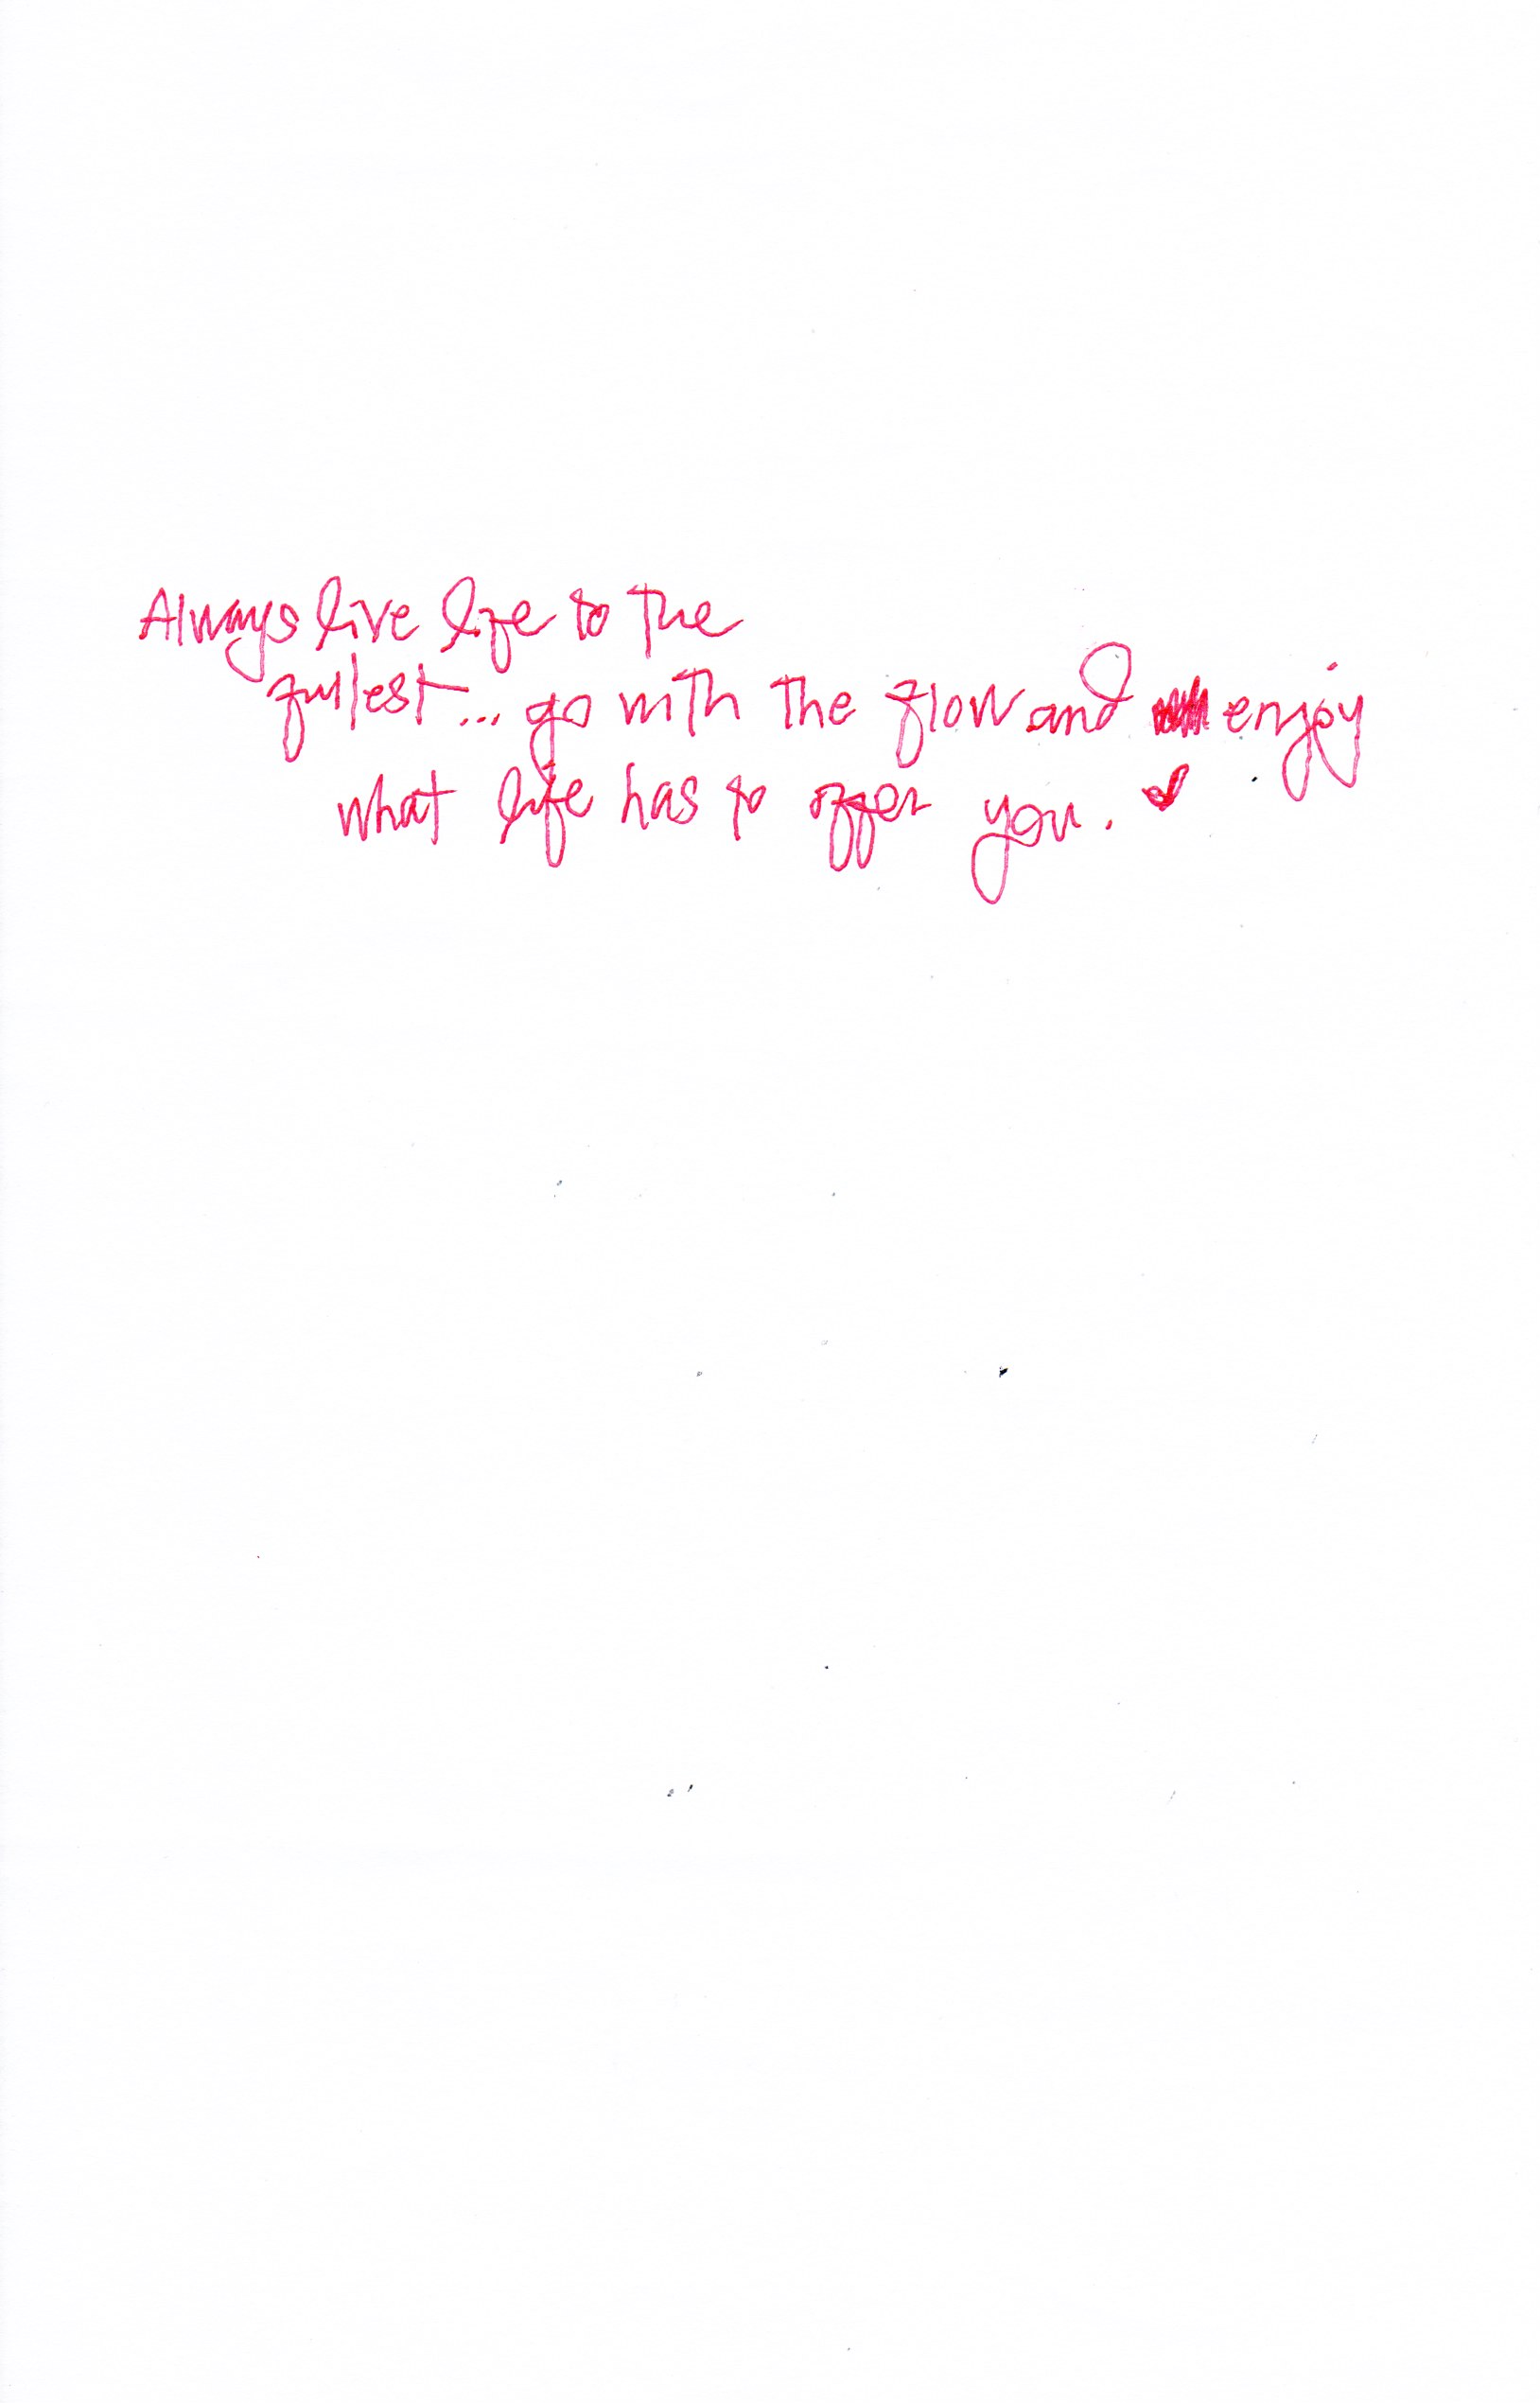 Always live life to the
fullest... go with the flow and enjoy
what life has to offer you.